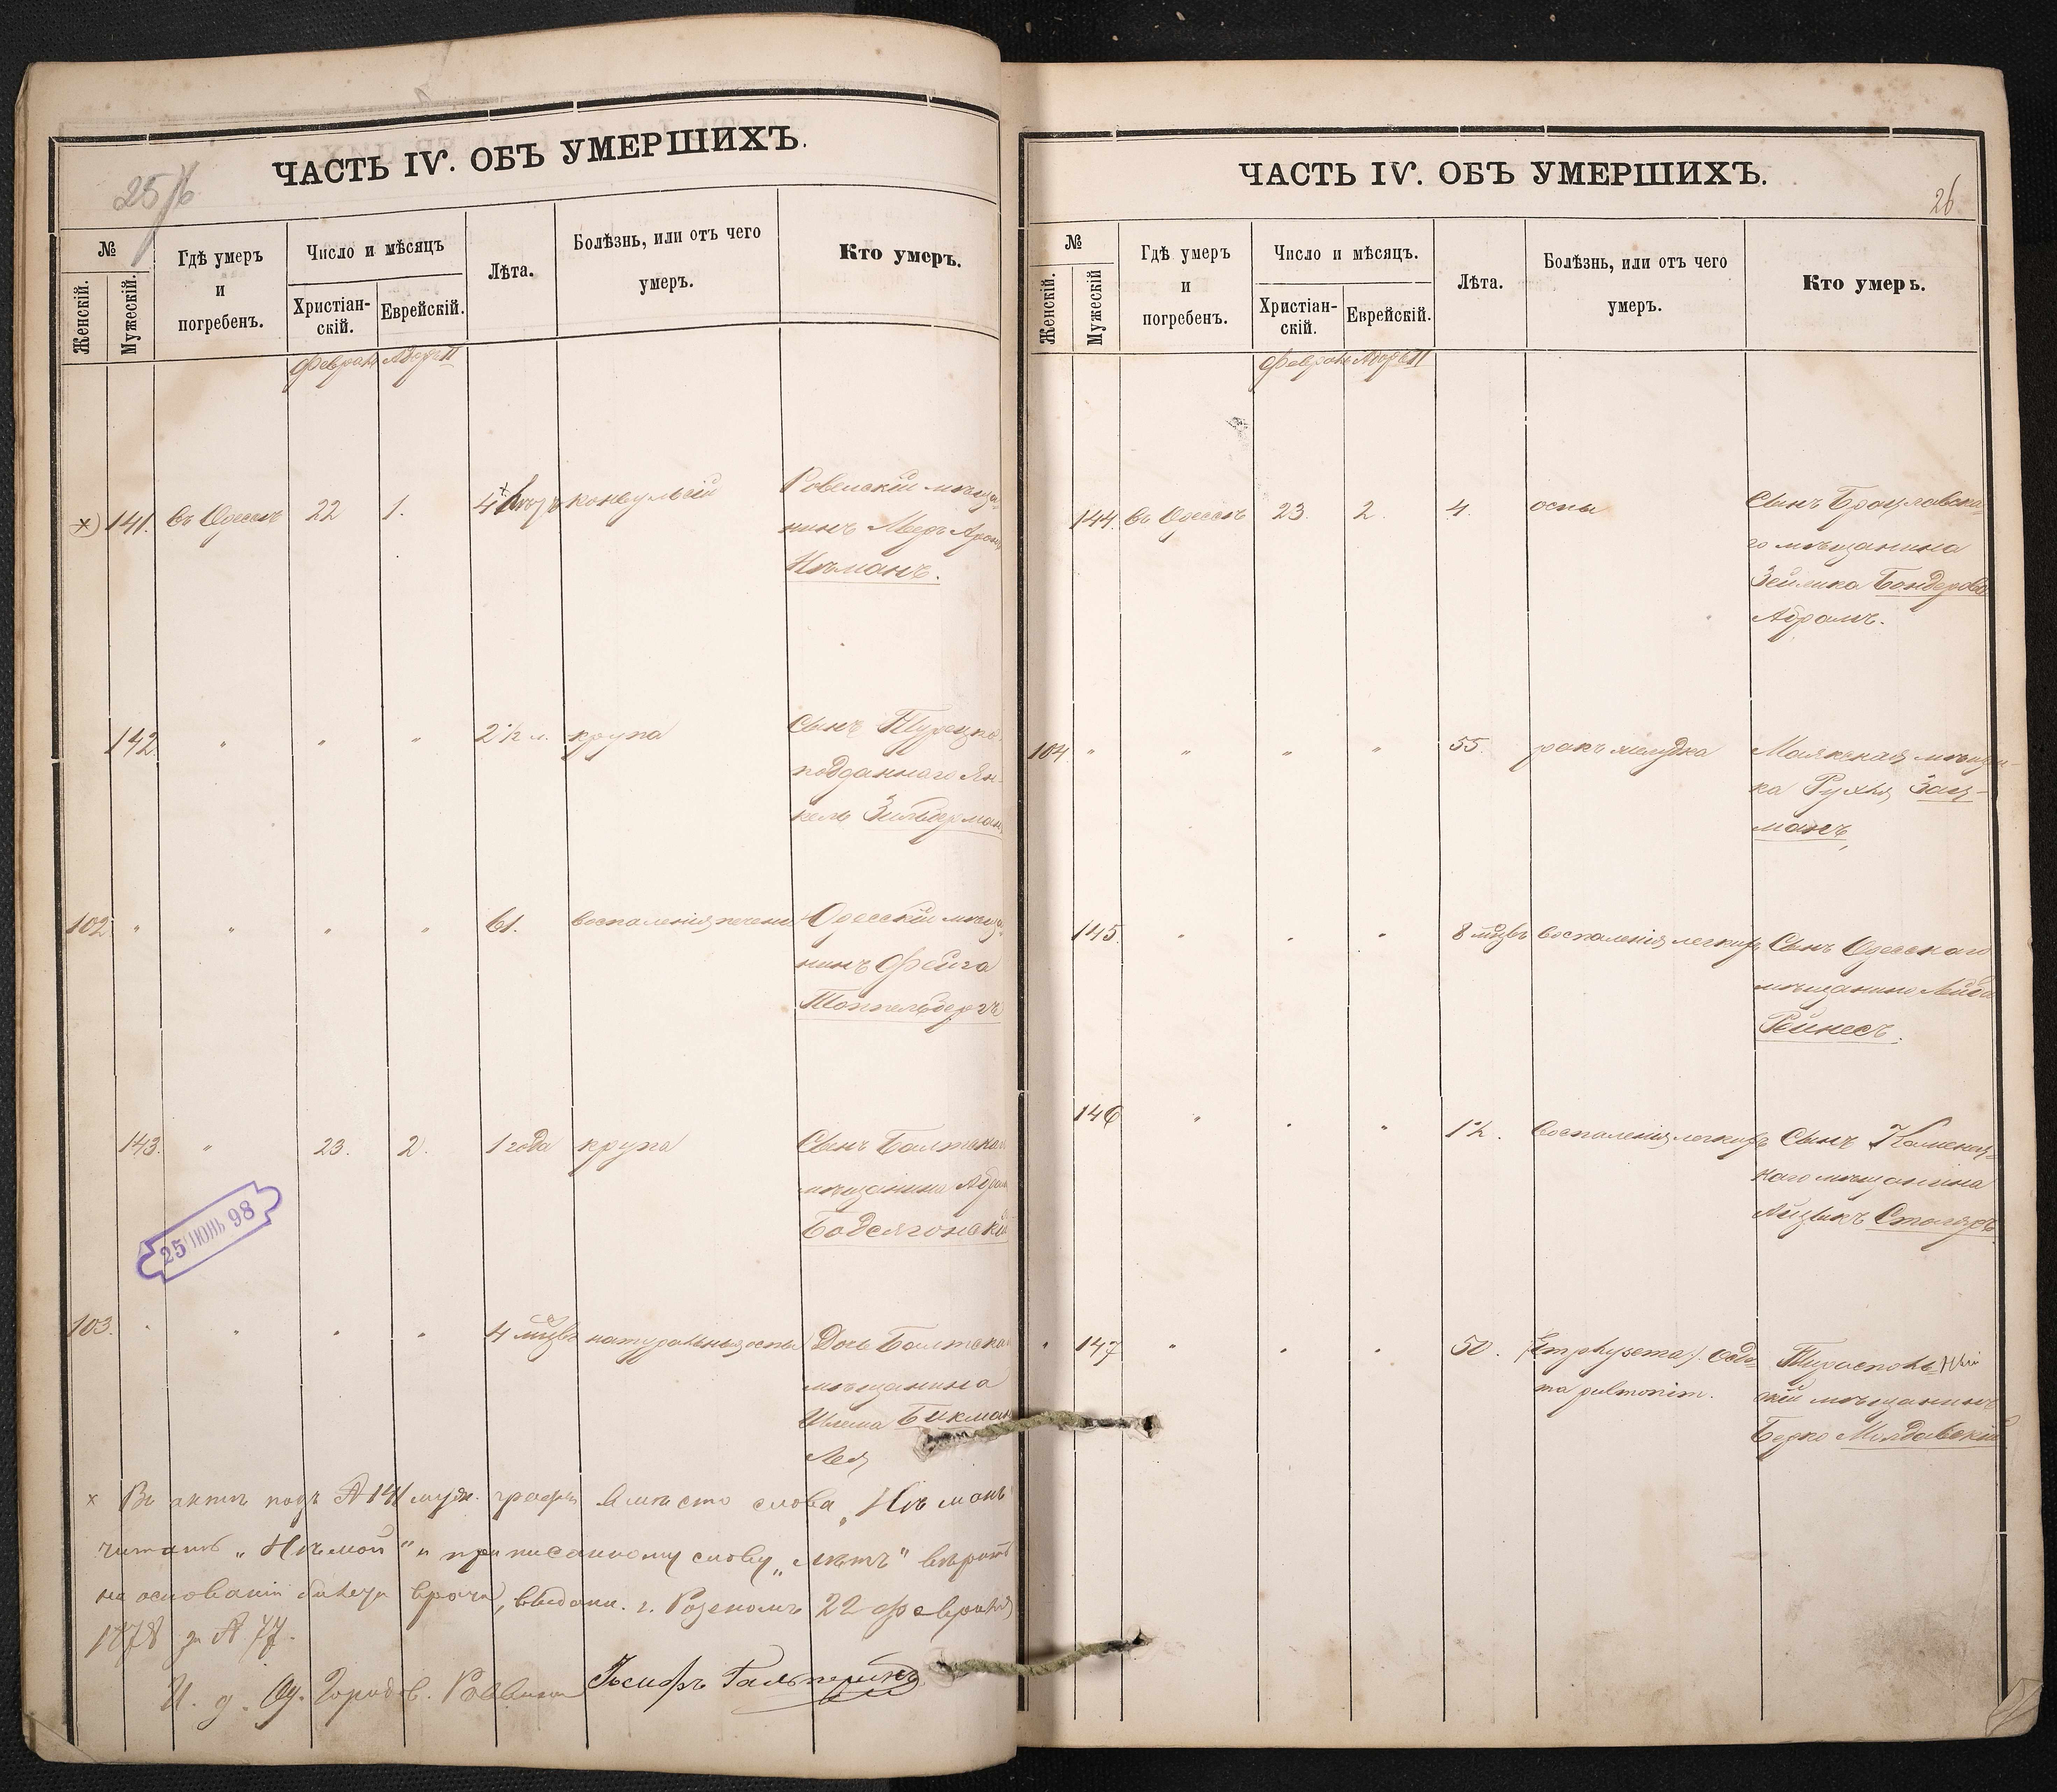 ЧАСТЬ IV. ОБЪ УМЕРШИХЪ.
25/б
№
Женскій.
Мужескій.
Гдѣ умеръ
и
погребенъ.
Число и мѣсяцъ
Христіан-
скій.
Еврейскій.
Лѣта.
Болѣзнь, или отъ чего
умеръ.
Кто умеръ.
Февраль Адаръ II
х) 141. въ Одессѣ 22 1. 4 х конвульсій Ровенскій мѣща-
нинъ Мееръ Аронъ
Нѣманъ.
142 " " " 2 1/2 л. крупа Сынъ Турецко
подданнаго Ян-
кель Зильберман
102 " " " " 61. воспаленія печени Одесскій мѣща-
нинъ Фейга
Топпельбергъ
143. " 23. 2. 1 года крупа Сынъ Балтска
мѣщанина
25 ІЮНЬ 98
103. " " " " 4 мѣсвъ натуральныя оспы Дочь Балтска
мѣщанина
Шлема Бикман
Лея
х Въ актѣ подъ № 141 муж. графы вмѣсто слова „Нѣманъ"
читать „Нѣмой" и приписанному слову „лѣтъ" вѣрить
на основаніи билета врача, выдан. г. Розеномъ 22 февраля
1878 за № 77.
И. д. Од. Городов. Раввина Іосифъ Гальперинъ
ЧАСТЬ IV. ОБЪ УМЕРШИХЪ.
26
№
Женскій.
Мужескій
Гдѣ умеръ
и
погребенъ.
Число и мѣсяцъ.
Христіан-
скій.
Еврейскій.
Лѣта.
Болѣзнь, или отъ чего
умеръ.
Кто умеръ.
Февраль Адаръ II
144. въ Одессѣ 23. 2. 4. оспы Сынъ Брацлавска-
го мѣщанина
Зейлика Бондерова
Абрамъ.
104 " " " " 55. ракъ желудка Маякская мѣщан-
ка Рухля Зац-
манъ,
145. " " " 8 мѣсвъ воспаленія легкихъ Сынъ Одесскаго
мѣщанина Лейба
Рейнесъ.
146 " " " 1 1/2. воспаленія легкихъ Сынъ Каменец-
каго мѣщанина
Айзикъ Столяръ
" 147 " " " 50. Emphysema
pulmonim. Тирасполь-
скій мѣщанинъ
Берко Молдавскій